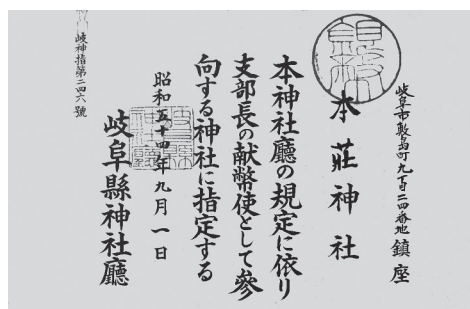 岐阜市敷島町九丁目二四番地 鎮座
本莊神社
本神社廳の規定に依り
支部長の献幣使として參
向する神社に指定する
昭和五十四年九月一日
岐阜縣神社廳
岐神指第二四六號